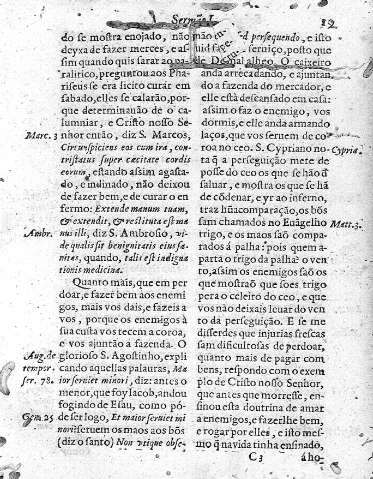 Sermão I.
12
do se mostra enojado, não
deyxa de fazer merces, e as-
sim quando quis sarar ao pa-
ralitico, preguntou aos Pha-
riseus se era licito curar em
sabado, elles se calarão, por-
que determinauão de o ca-
lumniar, e Cristo nosso Se-
Marc. 3
nhor então, diz S. Marcos,
Circunspiciens eos cum ira, con-
tristatus super cæcitate cordis
eorum, estando assim agasta-
do, e indinado, não deixou
de fazer bem, e de curar o en-
fermo: Extende manum tuam,
& extendit, & restituta est ma-
Ambr.
nus illi, diz S. Ambrosio, vi-
de qualis sit benignitatis eius sa-
nitas, quando, talis est indigna
tionis medicina.
Quanto mais, que em per
doar, e fazer bem aos enemi
gos, mais vos dais, e fazeis a
vos, porque os enemigos à
sua custa vos tecem a coroa,
e vos ajuntão a fazenda. O
Aug. de
glorioso S. Agostinho, expli
tempor.
cando aquellas palauras, Ma
ser. 78.
ior seruiet minori, diz: antes o
menor, que foy Iacob, andou
fogindo de Esau, como pó-
Gem 25
de ser logo, Et maior seruiet mi
nori: seruem os maos aos bõs
(diz o santo) Non vtique obse-
d persequendo, e isto
seruiço, posto que
O caixeiro
anda arrecadando, e ajuntan
do a fazenda do mercador, e
elle está descansado em casa:
assim o faz o enemigo, vos
dormis, e elle anda armando
laços, que vos seruem de co-
roa no ceo. S. Cypriano nota
Cypria.
q̃ a perseguição mete de
posse do ceo os que se hão de
saluar, e mostra os que se hã
de cõdenar, e yr ao inferno,
traz hũa comparação, os bõs
sam chamados no Euãgelho
Matt. 3.
trigo, e os maos saõ compa-
rados á palha: pois quem a-
parta o trigo da palha? o ven
to, assim os enemigos saõ os
que mostrão que soes trigo
pera o celeiro do ceo, e que
vos não deixais leuar do ven
to da perseguição. E se me
disserdes que injurias frescas
sam dificultosas de perdoar,
quanto mais de pagar com
bens, respondo com o exem
plo de Cristo nosso Senhor,
que antes que morresse, en-
sinou esta doutrina de amar
a enemigos, e fazerlhe bem,
e rogar por elles, e isto mes-
mo q̃ nauida tinha ensinado,
C 3
á ho-